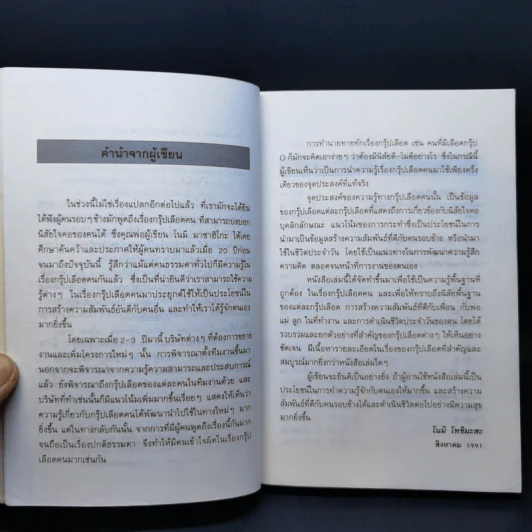 คำนำจากผู้เขียน
ในช่วงนี้ไม่ใช่เรื่องแปลกอีกต่อไปแล้ว ที่เรามักจะได้ยิน
ได้ฟังผู้คนรอบๆ ข้างมักพูดถึงเรื่องกรุ๊ปเลือดคน ที่สามารถบ่งบอก
นิสัยใจคอของคนได้ ซึ่งคุณพ่อผู้เขียน โนมิ มาซาฮิโกะ ได้เคย
ศึกษาค้นคว้าและประกาศให้ผู้คนทราบมาแล้วเมื่อ 20 ปีก่อน
จนมาถึงปัจจุบันนี้ รู้สึกว่าแม้แต่คนธรรมดาทั่วไปก็มีความรู้ใน
เรื่องกรุ๊ปเลือดคนกันแล้ว ซึ่งเป็นที่น่ายินดีว่าเราสามารถใช้ความ
รู้ต่างๆ ในเรื่องกรุ๊ปเลือดคนมาประยุกต์ใช้ให้เป็นประโยชน์ใน
การสร้างความสัมพันธ์อันดีกับคนอื่น และทำให้เราได้รู้จักตนเอง
มากยิ่งขึ้น
โดยเฉพาะเมื่อ 2-3 ปีมานี้ บริษัทต่างๆ ที่ต้องการขยาย
งานและเพิ่มโครงการใหม่ๆ นั้น การพิจารณาตั้งทีมงานขึ้นมา
นอกจากจะพิจารณาจากความรู้ความสามารถและประสบการณ์
แล้ว ยังพิจารณาถึงกรุ๊ปเลือดของแต่ละคนในทีมงานด้วย และ
บริษัทที่ทำเช่นนั้นก็มีแนวโน้มเพิ่มมากขึ้นเรื่อยๆ แสดงให้เห็นว่า
ความรู้เกี่ยวกับกรุ๊ปเลือดคนได้พัฒนานำไปใช้ในทางใหม่ๆ มาก
ยิ่งขึ้น แต่ในทางกลับกันนั้น จากการที่มีผู้คนพูดถึงเรื่องนี้กันมาก
จนถือเป็นเรื่องปกติธรรมดา จึงทำให้มีคนเข้าใจผิดในเรื่องกรุ๊ป
เลือดคนมากเช่นกัน
การทำนายทายทักเรื่องกรุ๊ปเลือด เช่น คนที่มีเลือดกรุ๊ป
O ก็มักจะคิดเอาง่ายๆ ว่าต้องมีนิสัยดี-ไม่ดีอย่างไร ซึ่งในกรณีนี้
ผู้เขียนเห็นว่าเป็นการนำความรู้เรื่องกรุ๊ปเลือดคนมาใช้เพียงครึ่ง
เดียวของจุดประสงค์ที่แท้จริง
จุดประสงค์ของความรู้ทางกรุ๊ปเลือดคนนั้น เป็นข้อมูล
ของกรุ๊ปเลือดแต่ละกรุ๊ปเลือดที่แสดงถึงการเกี่ยวข้องกับนิสัยใจคอ
บุคลิกลักษณะ แนวโน้มของการกระทำซึ่งเป็นประโยชน์ในการ
นำมาเป็นข้อมูลสร้างความสัมพันธ์ที่ดีกับคนรอบข้าง หรือนำมา
ใช้ในชีวิตประจำวัน โดยใช้เป็นแนวทางในการพัฒนาความรู้สึก
ความคิด ตลอดจนหน้าที่การงานของตนเอง
หนังสือเล่มนี้ได้จัดทำขึ้นมาเพื่อใช้เป็นความรู้พื้นฐานที่
ถูกต้อง ในเรื่องกรุ๊ปเลือดคน และเพื่อให้ทราบถึงนิสัยพื้นฐาน
ของแต่ละกรุ๊ปเลือด การสร้างความสัมพันธ์ที่ดีกับเพื่อน กับพ่อ
แม่ ลูก ในที่ทำงาน และการดำเนินชีวิตประจำวันของตน โดยได้
รวบรวมและยกตัวอย่างที่สำคัญของกรุ๊ปเลือดต่างๆ ให้เห็นอย่าง
ชัดเจน มีเนื้อหารายละเอียดในเรื่องของกรุ๊ปเลือดที่สำคัญและ
สมบูรณ์มากยิ่งกว่าหนังสือเล่มใดๆ
ผู้เขียนจะยินดีเป็นอย่างยิ่ง ถ้าผู้อ่านใช้หนังสือเล่มนี้เป็น
ประโยชน์ในการทำความรู้จักกับตนเองให้มากขึ้น และสร้างความ
สัมพันธ์ที่ดีกับคนรอบข้างได้และดำเนินชีวิตต่อไปอย่างมีความสุข
มากยิ่งขึ้น
โนมิ โทชิมะสะ
สิงหาคม 1991